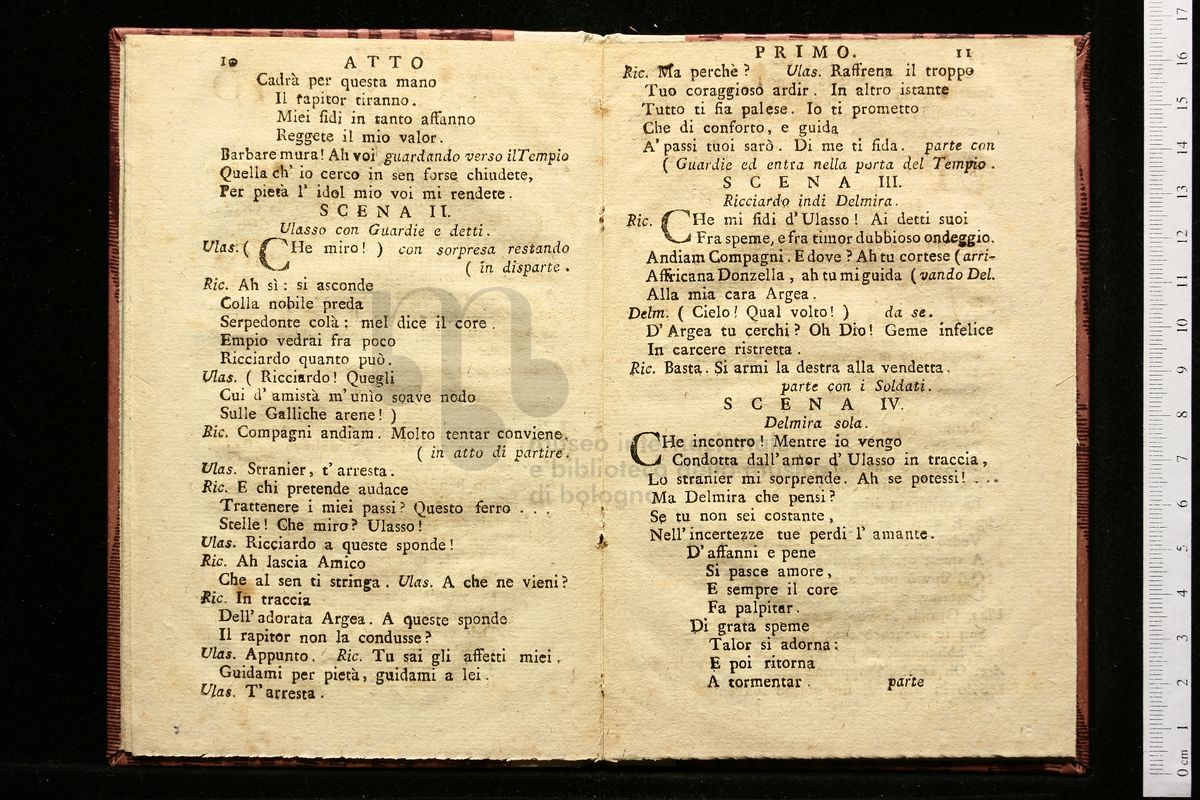 10 ATTO
Cadrà per questa mano
Il rapitor tiranno.
Miei fidi in tanto affanno
Reggete il mio valor.
Barbare mura! Ah voi guardando verso il Tempio
Quella ch' io cerco in sen forse chiudete,
Per pietà l' idol mio voi mi rendete.
SCENA II.
Ulasso con Guardie e detti.
Ulas. ( CHe miro! ) con sorpresa restando
( in disparte.
Ric. Ah sì: si asconde
Colla nobile preda
Serpedonte colà: mel dice il core.
Empio vedrai fra poco
Ricciardo quanto può.
Ulas. ( Ricciardo! Quegli
Cui d' amistà m'unìo soave nodo
Sulle Galliche arene! )
Ric. Compagni andiam. Molto tentar conviene.
( in atto di partire.
Ulas. Stranier, t'arresta.
Ric. E chi pretende audace
Trattenere i miei passi? Questo ferro . . .
Stelle! Che miro? Ulasso!
Ulas. Ricciardo a queste sponde!
Ric. Ah lascia Amico
Che al sen ti stringa. Ulas. A che ne vieni?
Ric. In traccia
Dell'adorata Argea. A queste sponde
Il rapitor non la condusse?
Ulas. Appunto. Ric. Tu sai gli affetti miei.
Guidami per pietà, guidami a lei.
Ulas. T'arresta.
PRIMO. 11
Ric. Ma perchè? Ulas. Raffrena il troppo
Tuo coraggioso ardir. In altro istante
Tutto ti fia palese. Io ti prometto
Che di conforto, e guida
A' passi tuoi sarò. Di me ti fida. parte con
( Guardie ed entra nella porta del Tempio.
SCENA III.
Ricciardo indi Delmira.
Ric. CHe mi fidi d'Ulasso! Ai detti suoi
Fra speme, e fra timor dubbioso ondeggio.
Andiam Compagni. E dove? Ah tu cortese (arri-
Affricana Donzella, ah tu mi guida (vando Del.
Alla mia cara Argea.
Delm. ( Cielo! Qual volto! ) da se.
D'Argea tu cerchi? Oh Dio! Geme infelice
In carcere ristretta.
Ric. Basta. Si armi la destra alla vendetta.
parte con i Soldati.
SCENA IV.
Delmira sola.
CHe incontro! Mentre io vengo
Condotta dall'amor d'Ulasso in traccia,
Lo stranier mi sorprende. Ah se potessi! . . .
Ma Delmira che pensi?
Se tu non sei costante,
Nell'incertezze tue perdi l'amante.
D'affanni e pene
Si pasce amore,
E sempre il core
Fa palpitar.
Di grata speme
Talor si adorna:
E poi ritorna
A tormentar. parte
museo
e biblioteca
di bologna
0 cm 1 2 3 4 5 6 7 8 9 10 11 12 13 14 15 16 17